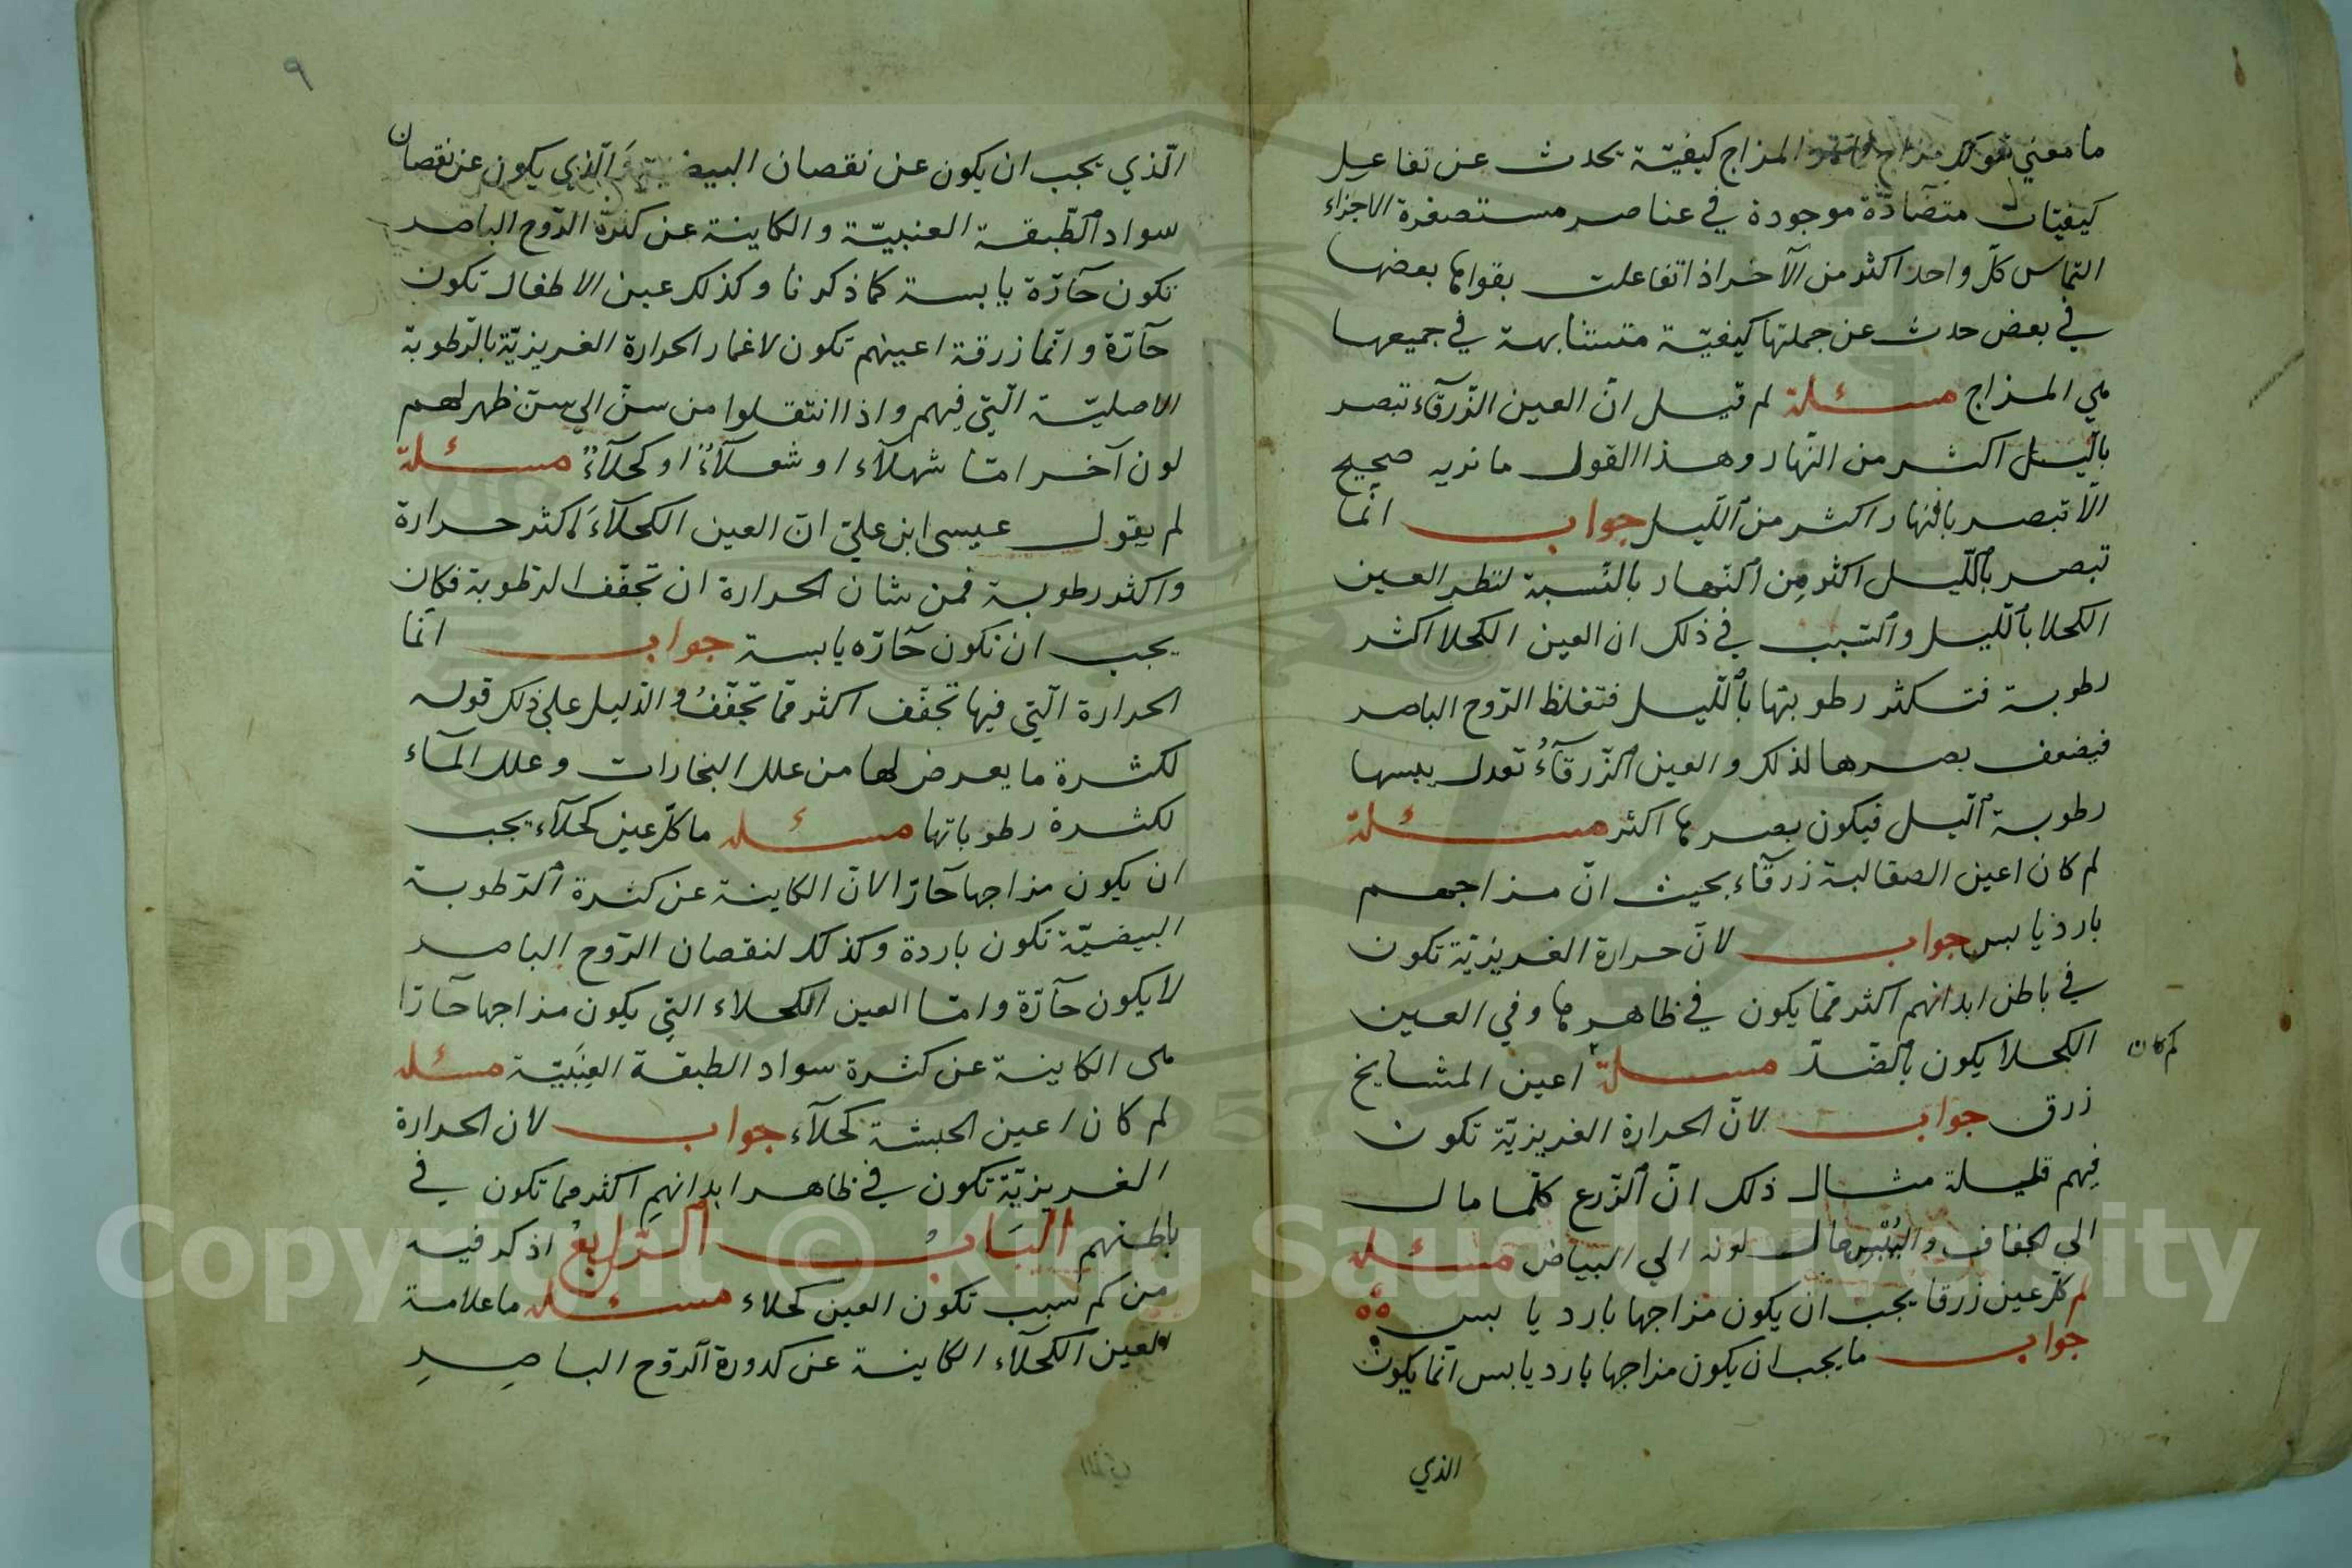 ما معني قولك مزاج المزاج كيفيّة يحدث عن تفاعيل
كيفيّات متضآدّة موجودة في عناصر مستصغرة الاجزاء
التماس كلّ واحد اكثر من الآخر اذا تفاعلت بقواها بعضها
في بعض حدث عن جملتها كيفيّة متشابهة في جميعها
هي المزاج مسئلة لم قيل انّ العين الزّرقآء تبصر
بالّيل اكثر من النّهار وهذا القول ما نريه صحيح
الّا تبصر بالنهار اكثر من اللّيل جواب انّما
تبصر باللّيل اكثر من النّهار بالنّسبة لنظر العين
الكحلا باللّيل والسّبب في ذلك ان العين الكحلا اكثر
رطوبة فتكثر رطوبتها باللّيل فتغلظ الرّوح الباصر
فيضعف بصرها لذلك والعين الزّرقآءُ تعدل يبسها
رطوبة الّيل فيكون بصرها اكثر مسئلة
لم كان اعين الصقالبة زرقآء بحيث انّ مزاجهم
بارد يابس جواب لانّ حرارة الغريزيّة تكون
في باطن ابدانهم اكثر ممّا يكون في ظاهرها وفي العين
الكحلا يكون بالضّدّ مسئلة اعين المشايخ
لم كان
زرق جواب لانّ الحرارة الغريزيّة تكون
فيهم قليلة مثال ذلك انّ الزّرع كلّما مال
الي الجفاف واليُبْس مال لونه الي البياض مسئله
لم كلّ عين زرقا يجب ان يكون مزاجها بارد يابس
جواب ما يجب ان يكون مزاجها بارد يابس انّما يكون
الذي
٩
الّذي يجب ان يكون عن نقصان البيضية والّذي يكون عن نقصان
سواد الطّبقة العنبيّة والكاينة عن كثرة الرّوح الباصر
تكون حآرّة يابسة كما ذكرنا وكذلك عين الاطفال تكون
حآرّة وانّما زرقة اعينهم تكون لاغمار الحرارة الغريزيّة بالرّطوبة
الاصليّة الّتي فيهم واذا انتقلوا من سنّ الي سنّ ظهر لهم
لون آخر امّا شهلآء او شعلآءً او كحلآءً مسئلة
لم يقول عيسى ابن عليّ انّ العين الكحلآءَ اكثر حرارة
واكثر رطوبة فمن شان الحرارة ان تجفّف الرّطوبة فكان
يجب ان تكون حآرّه يابسة جواب انّما
الحرارة الّتي فيها تجفّف اكثر ممّا تجفّفُ والدّليل علي ذلك قوله
لكثرة ما يعرض لها من علل البخارات وعلل المآء
لكثرة رطوباتها مسئله ما كلّ عين كحلآء يجب
ان يكون مزاجها حآرّا لانّ الكاينة عن كثرة الرّطوبة
البيضيّة تكون باردة وكذلك لنقصان الرّوح الباصر
لا يكون حآرّة وامّا العين الكحلاء التي يكون مزاجها حآرّا
هى الكاينة عن كثرة سواد الطبقة العِنَبيّة مسئله
لم كان اعين الحبشة كحلآء جواب لان الحرارة
الغريزيّة تكون في ظاهر ابدانهم اكثر مما تكون في
باطنهم البَابُ الرّابِعُ اذكر فيه
من كم سبب تكون العين كحلاء مسئله ما علامة
العين الكحلآء الكاينة عن كدورة الرّوح الباصِرِ